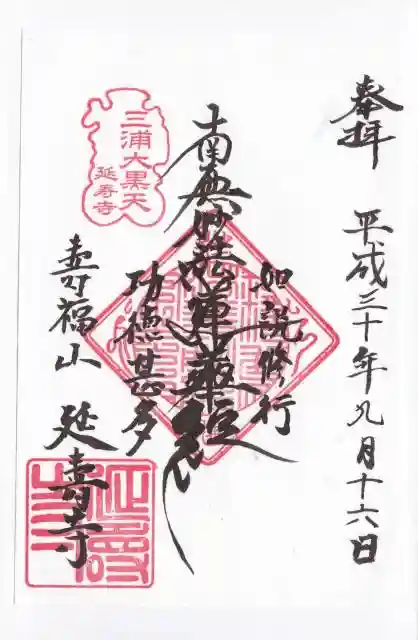 奉拝
平成三十年九月十六日
如説修行
南無妙法蓮華経
功徳甚多
三浦大黒天
延寿寺
寿福山
延寿寺